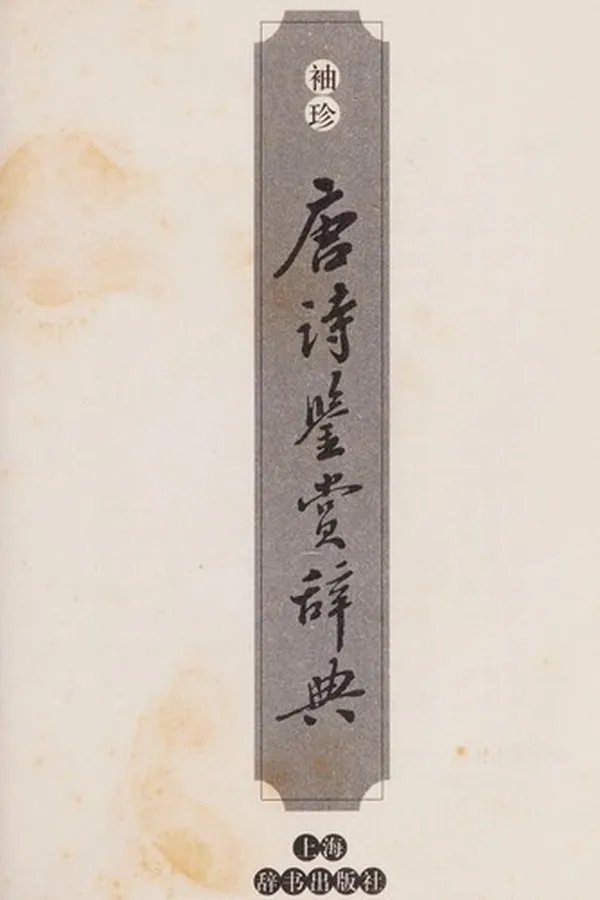 袖珍
唐诗鉴赏辞典
上海
辞书出版社